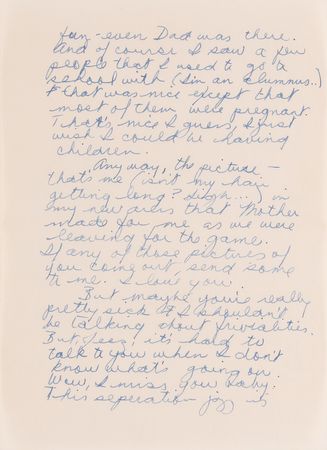 fun - even Dad was there.
And of course I saw a few
people that I used to go to
school with (I'm an alumnus..)
& that was nice except that
most of them were pregnant.
That's nice I guess, I just
wish I could be having
children.
Anyway, the picture -
that's me (isn't my hair
getting long? Sigh...) in
my new dress that Mother
made for me as we were
leaving for the game.
If any of those pictures of
you come out, send some
to me. I love you.
But maybe you're really
pretty sick & I shouldn't
be talking about trivialities.
But, Jess! it's hard to
talk to you when I don't
know what's going on.
Wow, I miss you, baby.
This seperation jazz is